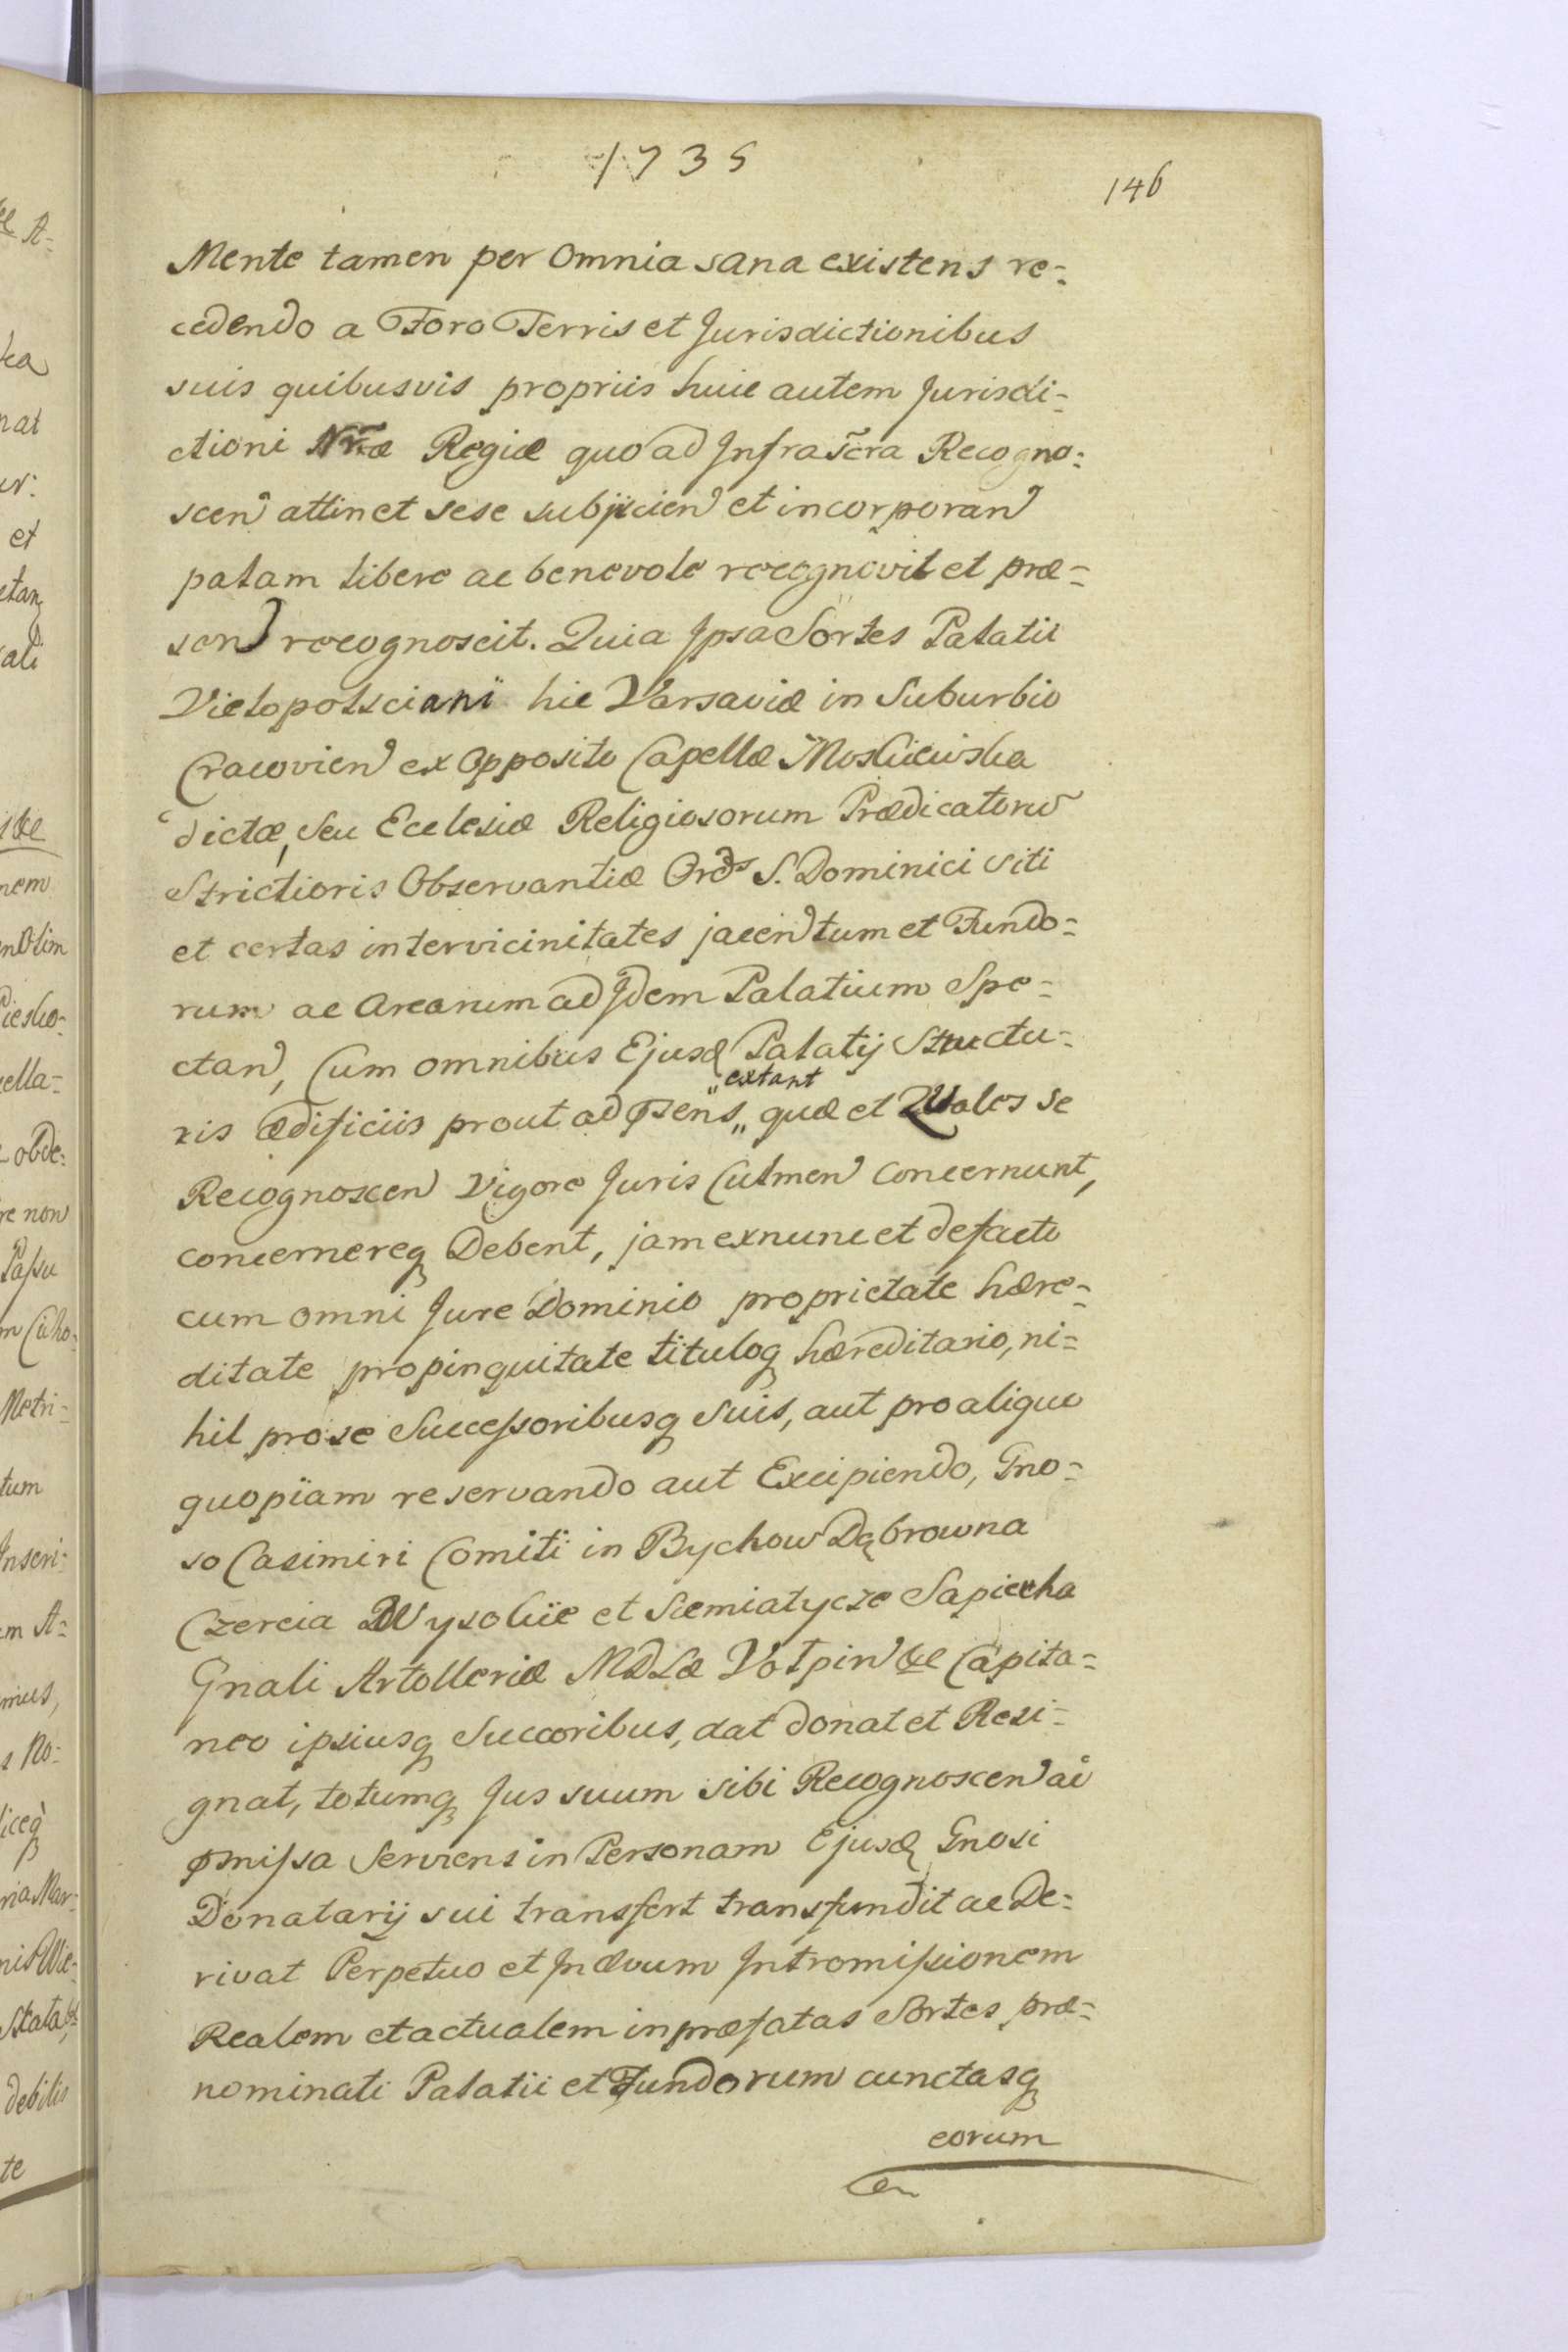 1735
146
Mente tamen per Omnia sana existens re=
cedendo a Foro Terris et Jurisdictionibus
suis quibusvis propriis huic autem Jurisdi=
ctioni Nr̃æ Regiæ quo ad Infrasc̃ra Recogno=
scen attinet sese subjicien et incorporan
palam libere ac benevole recognovit et præ=
sen recognoscit. Quia Ipsa Sortes Palatii
Vielopolsciani hic Varsaviæ in Suburbio
Cracovien ex Opposito Capellæ Moskiewska
dictæ, seu Ecclesiæ Religiosorum Prædicatorũ
Strictioris Observantiæ Ords S. Dominici siti
et certas intervicinitates jacen tum et Fundo=
rum ac Arearum ad Idem Palatium Spe=
ctan, Cum omnibus Ejusd Palatij Structu=
extant
ris ædificiis prout ad p̃sens „ quæ et Quales se
Recognoscen Vigore Juris Culmen concernunt,
concernereq Debent, jam exnunc et defacto
cum omni Jure Dominio proprietate hære=
ditate propinquitate tituloq hæreditario, ni=
hil pro se Successoribusq suis, aut pro aliquo
quopiam reservando aut Excipiendo, Gno=
so Casimiri Comiti in Bychow Dąbrowna
Czereia Wysokie et Siemiatycze Sapieha
Gnali Artolleriæ MDLæ Volpin &c Capita=
neo ipsiusq Succoribus, dat donat et Resi=
gnat, totumq Jus suum sibi Recognoscen ad
p̃missa Serviens in Personam Ejusd Gnosi
Donatarij sui transfert transfundit ac De=
rivat Perpetuo et In ævum Intromissionem
Realem et actualem in præfatas Sortes præ=
nominati Palatii et Fundorum cunctasq
eorum